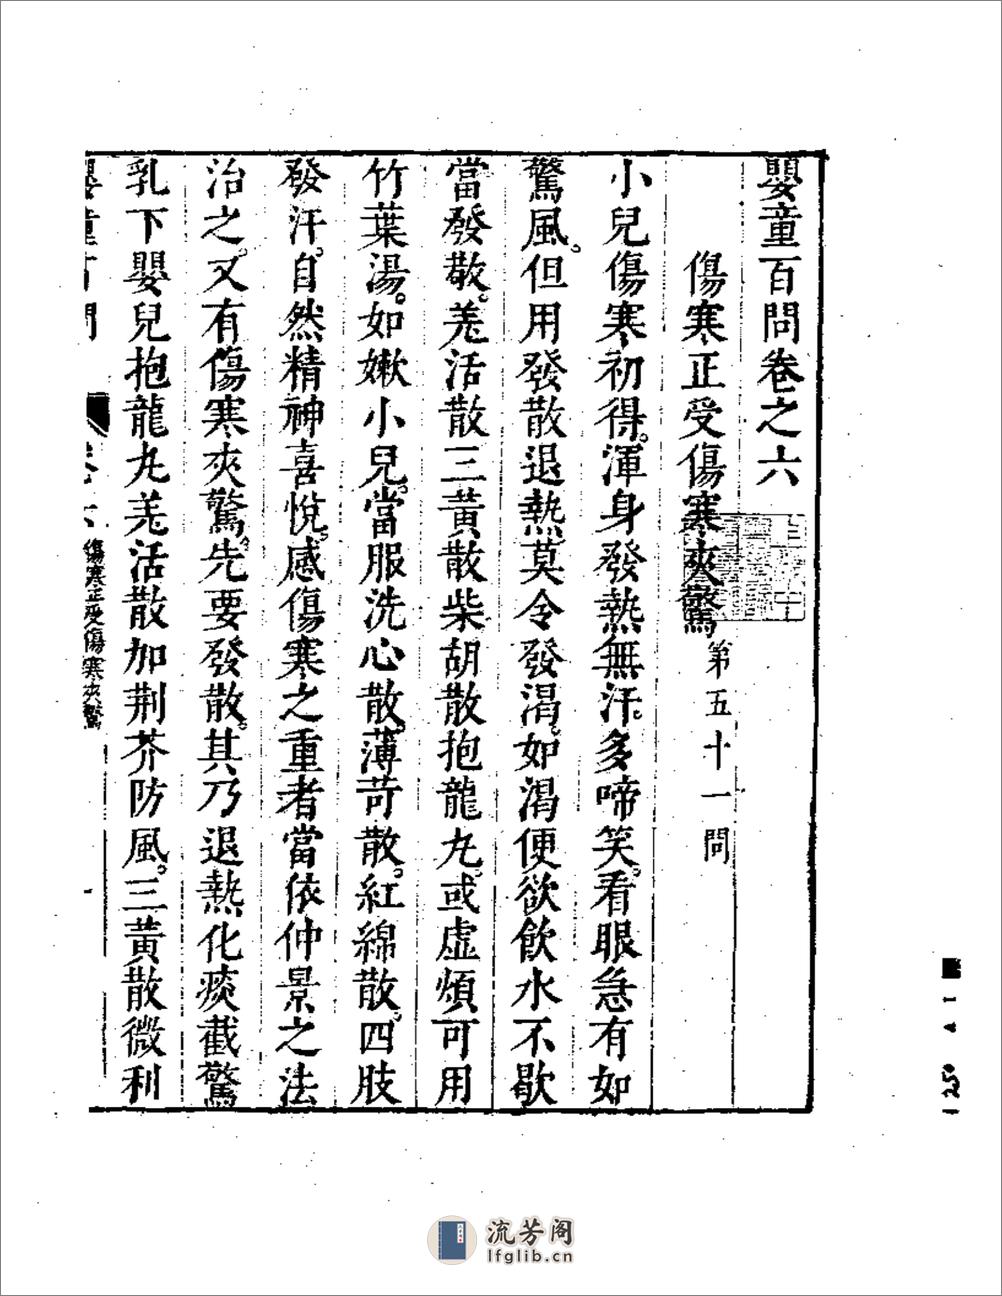 嬰童百問卷之六
傷寒正受傷寒夾驚 第五十一問
小兒傷寒初得。渾身發熱無汗。多啼笑。看眼急有如
驚風。但用發散退熱。莫令發渴。如渴便欲飲水不歇
當發散。羗活散三黃散柴胡散抱龍丸。或虛煩可用
竹葉湯。如嫩小兒。當服洗心散。薄苛散。紅綿散。四肢
發汗。自然精神喜悅。感傷寒之重者當依仲景之法
治之。又有傷寒夾驚。先要發散。其乃退熱化痰截驚
乳下嬰兒抱龍丸羗活散加荆芥防風。三黃散微利
嬰童百問
卷六
傷寒正受傷寒夾驚
一
流芳阁
lfglib.cn